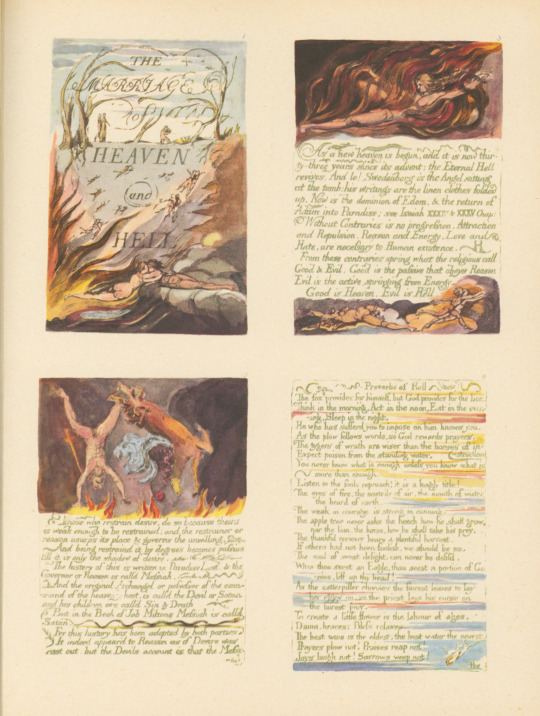 THE
MARRIAGE
of
HEAVEN
and
HELL
As a new heaven is begun, and it is now thir-
ty-three years since its advent: the Eternal Hell
revives. And lo! Swedenborg is the Angel sitting
at the tomb: his writings are the linen clothes folded
up. Now is the dominion of Edom, & the return of
Adam into Paradise; see Isaiah XXXIV & XXXV Chap:
Without Contraries is no progression. Attraction
and Repulsion, Reason and Energy, Love and
Hate, are necessary to Human existence.
From these contraries spring what the religious call
Good & Evil. Good is the passive that obeys Reason
Evil is the active springing from Energy.
Good is Heaven. Evil is Hell
Those who restrain desire, do so because theirs
is weak enough to be restrained; and the restrainer or
reason usurps its place & governs the unwilling.
And being restrained it by degrees becomes passive
till it is only the shadow of desire.
The history of this is written in Paradise Lost & the
Governor or Reason is call'd Messiah.
And the original Archangel or possessor of the com-
mand of the heavenly host, is calld the Devil or Satan
and his children are call'd Sin & Death
But in the Book of Job Miltons Messiah is call'd
Satan
For this history has been adopted by both parties
It indeed appear'd to Reason as if Desire was
cast out, but the Devils account is, that the Messi-
Proverbs of Hell
The fox provides for himself, but God provides for the lion.
Think in the morning, Act in the noon, Eat in the even-
ing, Sleep in the night.
He who has sufferd you to impose on him knows you.
As the plow follows words, so God rewards prayers.
The tygers of wrath are wiser than the horses of in-
Expect poison from the standing water. (struction
You never know what is enough unless you know what is
more than enough.
Listen to the fools reproach! it is a kingly title!
The eyes of fire, the nostrils of air, the mouth of water,
the beard of earth.
The weak in courage is strong in cunning.
The apple tree never asks the beech how he shall grow,
nor the lion, the horse, how he shall take his prey.
The thankful reciever bears a plentiful harvest.
If others had not been foolish, we should be so.
The soul of sweet delight, can never be defil'd.
When thou seest an Eagle, thou seest a portion of Ge-
nius, lift up thy head!
As the catterpiller chooses the fairest leaves to lay
her eggs on, so the priest lays his curse on
the fairest joys.
To create a little flower is the labour of ages.
Damn, braces: Bless relaxes.
The best wine is the oldest, the best water the newest
Prayers plow not! Praises reap not!
Joys laugh not! Sorrows weep not!
The